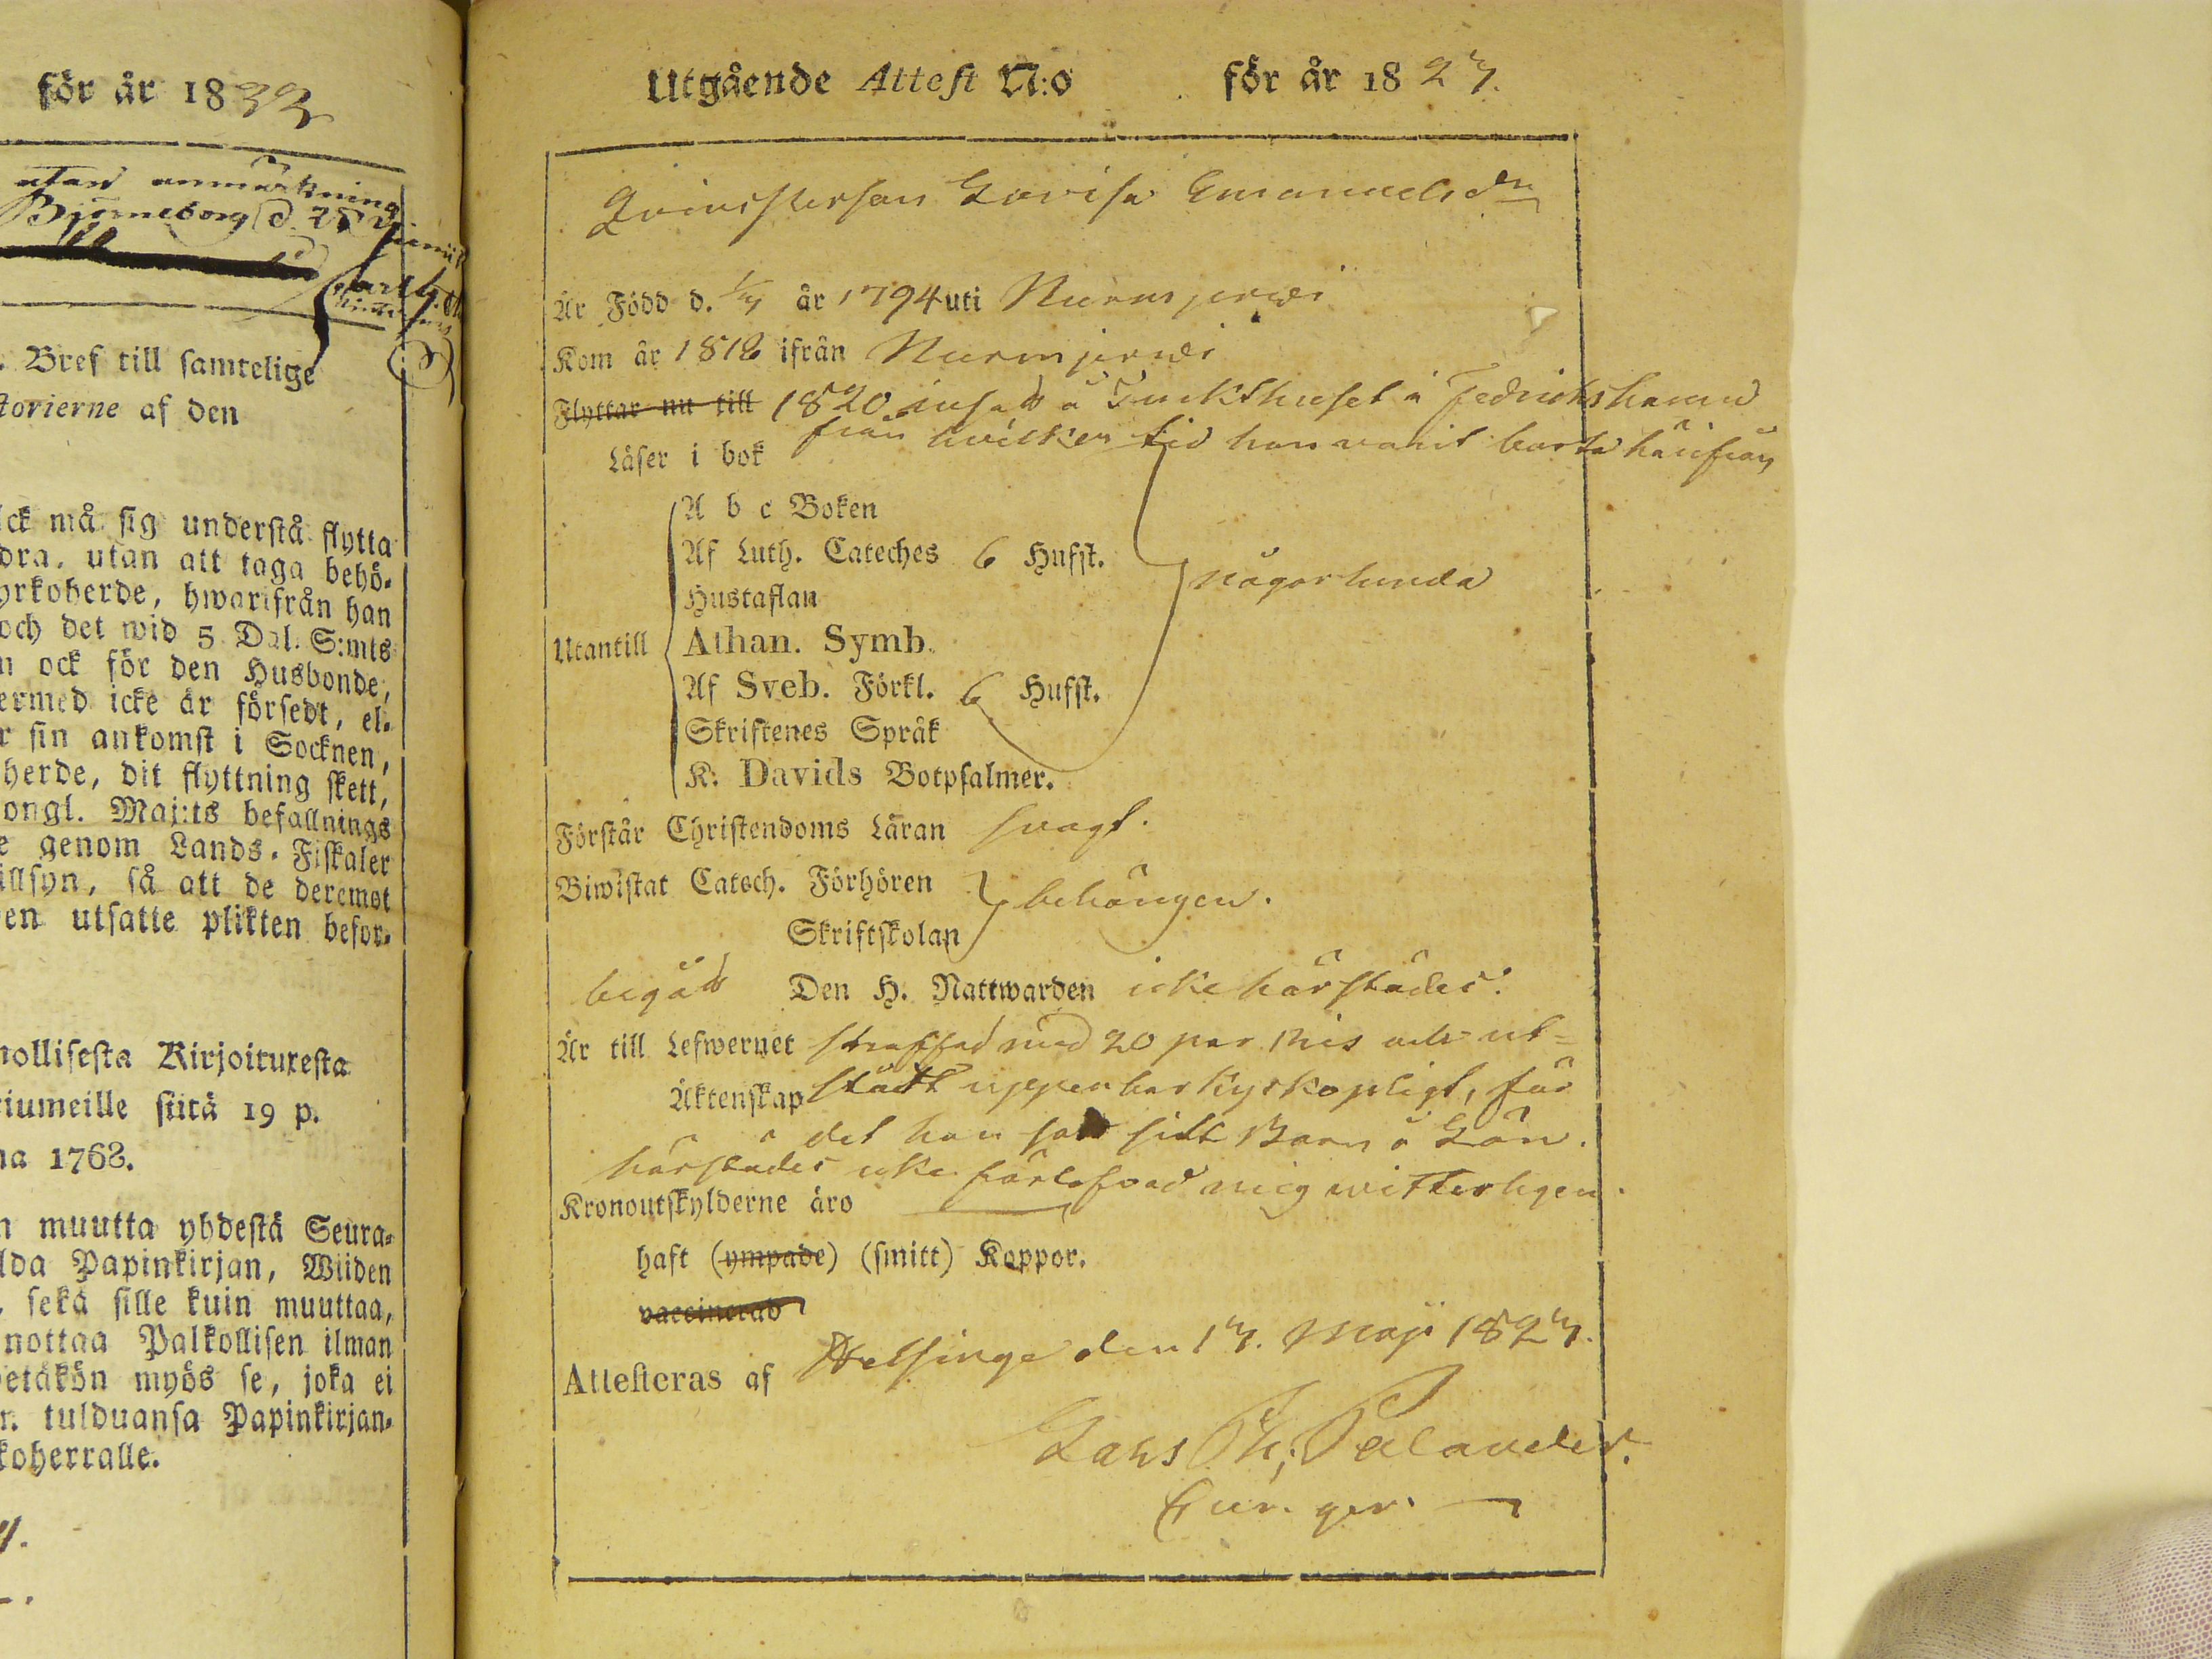 för år 1833
utan anmärkning
Björneborg d. 25
. Bref till samtelige
torierne af den
ick må sig understå flytta
dra, utan att taga behö-
yrkoherde, hwarifrån han
och det wid 5 Dal. S:mts
n ock för den Husbonde,
ermed icke är försedt, el-
r sin ankomst i Socknen,
herde, dit flyttning skett,
ongl. Maj:ts befallnings
e genom Lands-Fiskaler
illsyn, så att de deremot
en utsatte plikten befor-
nollisesta Kirjoituxesta
iumeille siitä 19 p.
na 1768.
n muutta yhdestä Seura-
lda Papinkirjan, Wiiden
, sekä sille kuin muuttaa,
nottaa Palkollisen ilman
etäkön myös se, joka ei
n tulduansa Papinkirjan-
koherralle.
Utgående Attest N:o för år 1827.
Qvinspersan Lovisa Emanuelsdr
Är Född d. 1/7 år 1794 uti Nurmjerwi
Kom år 1818 ifrån Nurmjerwi
Flyttar nu till 1820 insatt å Tuckthuset i Fedrichshamn
från hvilken tid hon varit borta härifrån
Läser i bok
A b c Boken
Af Luth. Cateches 6 Hufst.
någorlunda
Hustaflan
Utantill Athan. Symb.
Af Sveb. Förkl. 6 Hufst.
Skriftenes Språk
K. Davids Botpsalmer.
Förstår Christendoms Läran svagt.
Biwistat Catech. Förhören behörigen.
Skriftskolan
begått Den H. Nattwarden icke härstädes.
Är till Lefwernet straffad med 20 par Ris och ut-
Äktenskap stått uppenbar Kyrkopligt, för
det hon satt sitt Barn å Lön.
härstädes icke förlofvad mig witterligen.
Kronoutskylderne äro
haft (ympade) (smitt) Koppor.
vaccinerad
Attesteras af Helsinge den 17. Maji 1827.
Lars Th; Palander.
Cur. ger.